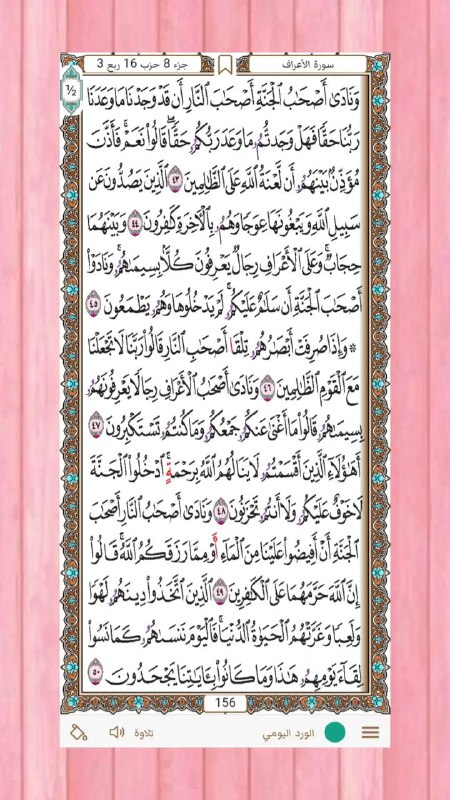 سورة الأعراف
جزء 8 حزب 16 ربع 3
½
وَنَادَىٰ أَصْحَٰبُ الْجَنَّةِ أَصْحَٰبَ النَّارِ أَن قَدْ وَجَدْنَا مَا وَعَدَنَا
رَبُّنَا حَقًّا فَهَلْ وَجَدتُّمُۥ مَا وَعَدَ رَبُّكُمُۥ حَقًّاۖ قَالُوا۟ نَعَمْۚ فَأَذَّنَ
مُؤَذِّنٌۢ بَيْنَهُمُۥ أَن لَّعْنَةُ اللَّهِ عَلَى الظَّٰلِمِينَ ٤٣ الَّذِينَ يَصُدُّونَ عَن
سَبِيلِ اللَّهِ وَيَبْغُونَهَا عِوَجًا وَهُمُۥ بِالْأَخِرَةِ كَٰفِرُونَ ٤٤ وَبَيْنَهُمَا
حِجَابٌۚ وَعَلَى الْأَعْرَافِ رِجَالٌ يَعْرِفُونَ كُلًّۢا بِسِيمَىٰهُمُۥۚ وَنَادَوْا۟
أَصْحَٰبَ الْجَنَّةِ أَن سَلَٰمٌ عَلَيْكُمُۥۚ لَمْ يَدْخُلُوهَا وَهُمُۥ يَطْمَعُونَ ٤٥
۞ وَإِذَا صُرِفَتْ أَبْصَٰرُهُمُۥ تِلْقَا أَصْحَٰبِ النَّارِ قَالُوا۟ رَبَّنَا لَا تَجْعَلْنَا
مَعَ الْقَوْمِ الظَّٰلِمِينَ ٤٦ وَنَادَىٰ أَصْحَٰبُ الْأَعْرَافِ رِجَالًا يَعْرِفُونَهُمُۥ
بِسِيمَىٰهُمُۥ قَالُوا۟ مَا أَغْنَىٰ عَنكُمُۥ جَمْعُكُمُۥ وَمَا كُنتُمُۥ تَسْتَكْبِرُونَ ٤٧
أَهَٰؤُلَاءِ الَّذِينَ أَقْسَمْتُمُۥ لَا يَنَالُهُمُ اللَّهُ بِرَحْمَةٍۚ ادْخُلُوا۟ الْجَنَّةَ
لَا خَوْفٌ عَلَيْكُمُۥ وَلَا أَنتُمُۥ تَحْزَنُونَ ٤٨ وَنَادَىٰ أَصْحَٰبُ النَّارِ أَصْحَٰبَ
الْجَنَّةِ أَنْ أَفِيضُوا۟ عَلَيْنَا مِنَ الْمَاءِ أَوْ مِمَّا رَزَقَكُمُ اللَّهُۚ قَالُوا۟
إِنَّ اللَّهَ حَرَّمَهُمَا عَلَى الْكَٰفِرِينَ ٤٩ الَّذِينَ اتَّخَذُوا۟ دِينَهُمُۥ لَهْوًا
وَلَعِبًا وَغَرَّتْهُمُ الْحَيَوٰةُ الدُّنْيَاۚ فَالْيَوْمَ نَنسَىٰهُمُۥ كَمَا نَسُوا۟
لِقَاءَ يَوْمِهِمُۥ هَٰذَا وَمَا كَانُوا۟ بِـَٔايَٰتِنَا يَجْحَدُونَ ٥٠
156
الورد اليومي
تلاوة